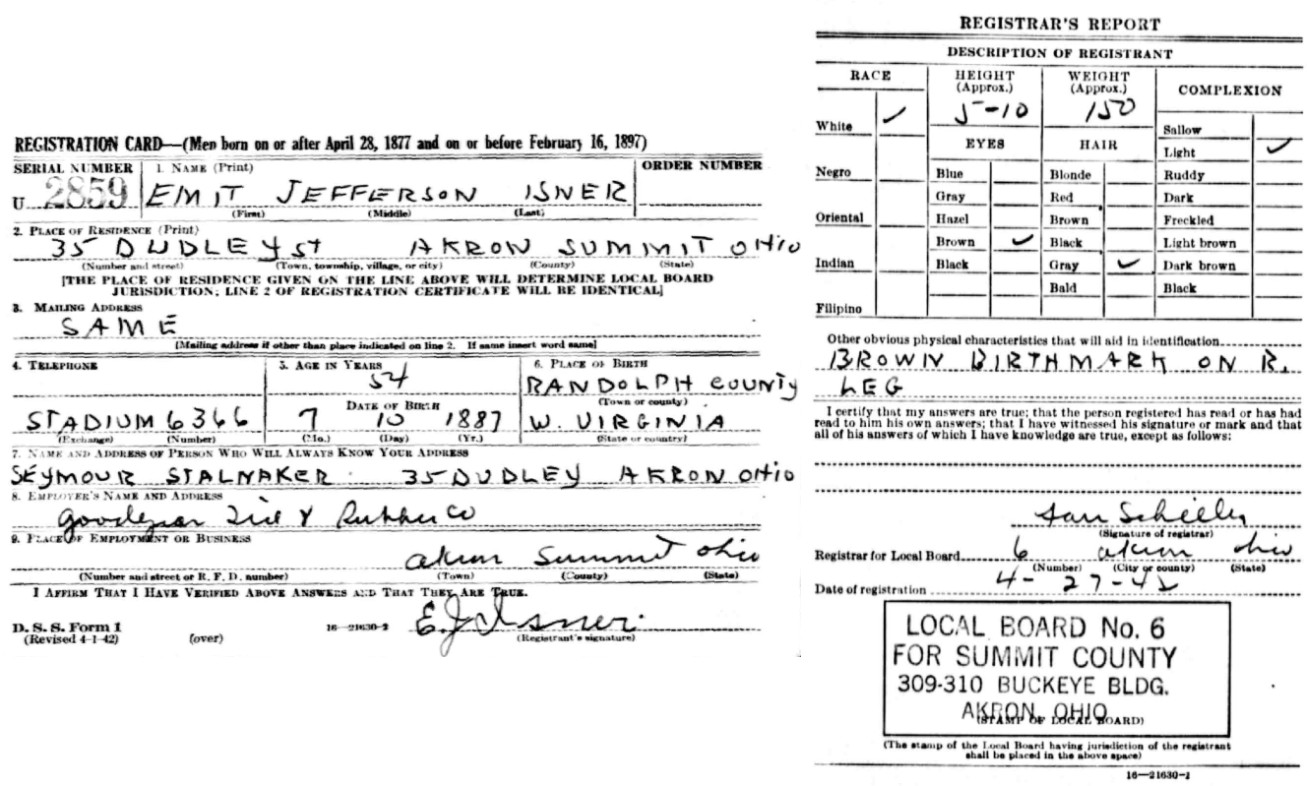 REGISTRATION CARD—(Men born on or after April 28, 1877 and on or before February 16, 1897)
SERIAL NUMBER
1. NAME (Print)
ORDER NUMBER
U 2859
EMIT JEFFERSON ISNER
(First) (Middle) (Last)
2. PLACE OF RESIDENCE (Print)
35 DUDLEY St AKRON SUMMIT OHio
(Number and street) (Town, township, village, or city) (County) (State)
[THE PLACE OF RESIDENCE GIVEN ON THE LINE ABOVE WILL DETERMINE LOCAL BOARD
JURISDICTION; LINE 2 OF REGISTRATION CERTIFICATE WILL BE IDENTICAL]
3. MAILING ADDRESS
SAME
(Mailing address if other than place indicated on line 2. If same insert word same)
4. TELEPHONE
5. AGE IN YEARS
6. PLACE OF BIRTH
54
RANDOLPH COUNTY
(Town or county)
DATE OF BIRTH
STADIUM 6366
7 10 1887
W. VIRGINIA
(Exchange) (Number)
(Mo.) (Day) (Yr.)
(State or country)
7. NAME AND ADDRESS OF PERSON WHO WILL ALWAYS KNOW YOUR ADDRESS
SEYMOUR STALNAKER 35 DUDLEY AKRON OHio
8. EMPLOYER'S NAME AND ADDRESS
Goodyear Tire & Rubber Co
9. PLACE OF EMPLOYMENT OR BUSINESS
Akron Summit Ohio
(Number and street or R. F. D. number) (Town) (County) (State)
I AFFIRM THAT I HAVE VERIFIED ABOVE ANSWERS AND THAT THEY ARE TRUE.
D. S. S. Form 1
(Revised 4-1-42) (over) 16—21630-2
E. J. Isner
(Registrant's signature)
REGISTRAR'S REPORT
DESCRIPTION OF REGISTRANT
RACE
HEIGHT (Approx.)
WEIGHT (Approx.)
COMPLEXION
5-10
150
White ✓
Sallow
EYES
HAIR
Light ✓
Negro
Blue
Blonde
Ruddy
Gray
Red
Dark
Oriental
Hazel
Brown
Freckled
Brown ✓
Black
Light brown
Indian
Black
Gray ✓
Dark brown
Bald
Black
Filipino
Other obvious physical characteristics that will aid in identification
BROWN BIRTHMARK ON R.
LEG
I certify that my answers are true; that the person registered has read or has had
read to him his own answers; that I have witnessed his signature or mark and that
all of his answers of which I have knowledge are true, except as follows:
(Signature of registrar)
Registrar for Local Board 6 Akron Ohio
(Number) (City or county) (State)
Date of registration 4-27-42
LOCAL BOARD No. 6
FOR SUMMIT COUNTY
309-310 BUCKEYE BLDG.
AKRON, OHIO
(STAMP OF LOCAL BOARD)
(The stamp of the Local Board having jurisdiction of the registrant
shall be placed in the above space)
16—21630-1